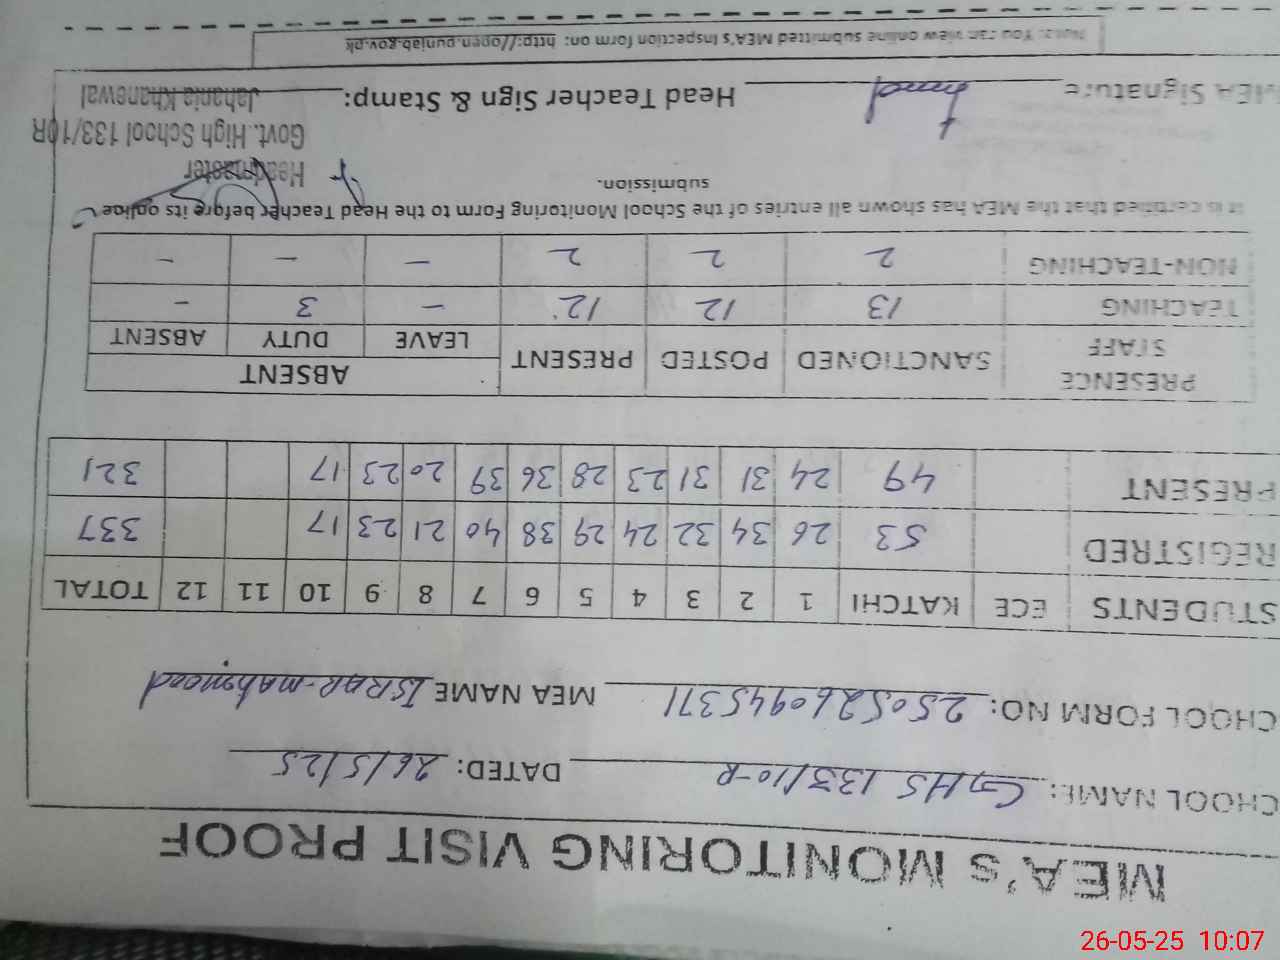 MEA's MONITORING VISIT PROOF
CHOOL NAME: GHS 133/10-R DATED: 26/5/25
CHOOL FORM NO: 250526094537 MEA NAME ISRAR-mahmood
STUDENTS ECE KATCHI 1 2 3 4 5 6 7 8 9 10 11 12 TOTAL
REGISTRED 53 26 34 32 24 29 38 40 21 23 17 337
PRESENT 49 24 31 31 23 28 36 39 20 23 17 321
PRESENCE STAFF SANCTIONED POSTED PRESENT ABSENT
LEAVE DUTY ABSENT
TEACHING 13 12 12 - 3 -
NON-TEACHING 2 2 2 - - -
It is certified that the MEA has shown all entries of the School Monitoring Form to the Head Teacher before its online
submission.
Headmaster
Govt. High School 133/10R
Jahania Khanewal
MEA Signature Head Teacher Sign & Stamp:
Note: You can view online submitted MEA's Inspection form on: http://open.punjab.gov.pk
26-05-25 10:07